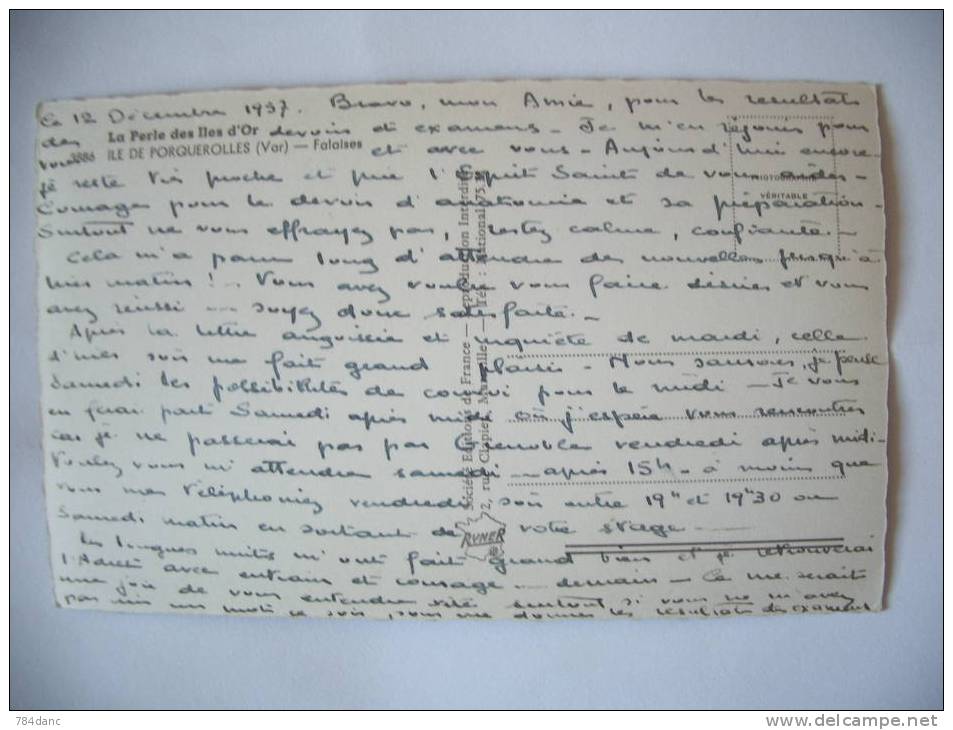 Le 12 Décembre 1957. Bravo, mon Amie, pour les resultats
des devoirs et examens. Je m'en rejouis pour
La Perle des Iles d'Or
vous et avec vous. Aujourd'hui encore
3886 ILE DE PORQUEROLLES (Var) — Falaises
je reste très proche et prie l'Esprit Saint de vous aider.
PHOTOGRAPHIE
VÉRITABLE
Courage pour le devoir d'anatomie et sa préparation.
Surtout ne vous effrayez pas, restez calme, confiante.
Cela m'a paru long d'attendre des nouvelles jusqu'à
hier matin ! Vous avez voulu vous faire désirer et vous
avez réussi ... soyez donc satisfaite.
Après la lettre angoissée et inquiète de mardi, celle
d'hier soir me fait grand plaisir. Nous saurons, je pense
Samedi les possibilités de convoi pour le midi — Je vous
en ferai part Samedi après midi où j'espère vous rencontrer
car je ne passerai pas par Grenoble vendredi après midi.
Voulez vous m'attendre samedi — après 15h. à moins que
vous me téléphoniez vendredi soir entre 19h et 19h30 ou
Samedi matin en sortant de votre stage
Les longues nuits m'ont fait grand bien et je retrouverai
l'Adret avec entrain et courage ... demain — Ce me serait
une joie de vous entendre surtout si vous ne m'avez
pas mis un mot ce soir, pour me donner les resultats des examens
Société Editions de France — Reproduction Interdite
2, rue Clapier, Marseille — Tél. : National 75
RYNER
784danc
www.delcampe.net